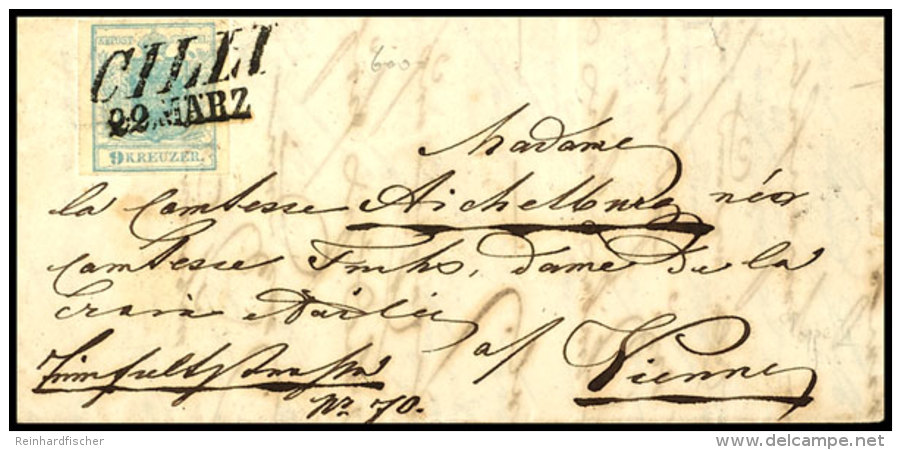 CILLI
22. MÄRZ
KKPOST-STEMPEL
9 KREUZER.
600
Madame
la Comtesse Aichelburg née
Comtesse Fuchs, dame de la
Croix étoilée
a/ Vienne
No 70.
Reinhardfischer
www.delcampe.net